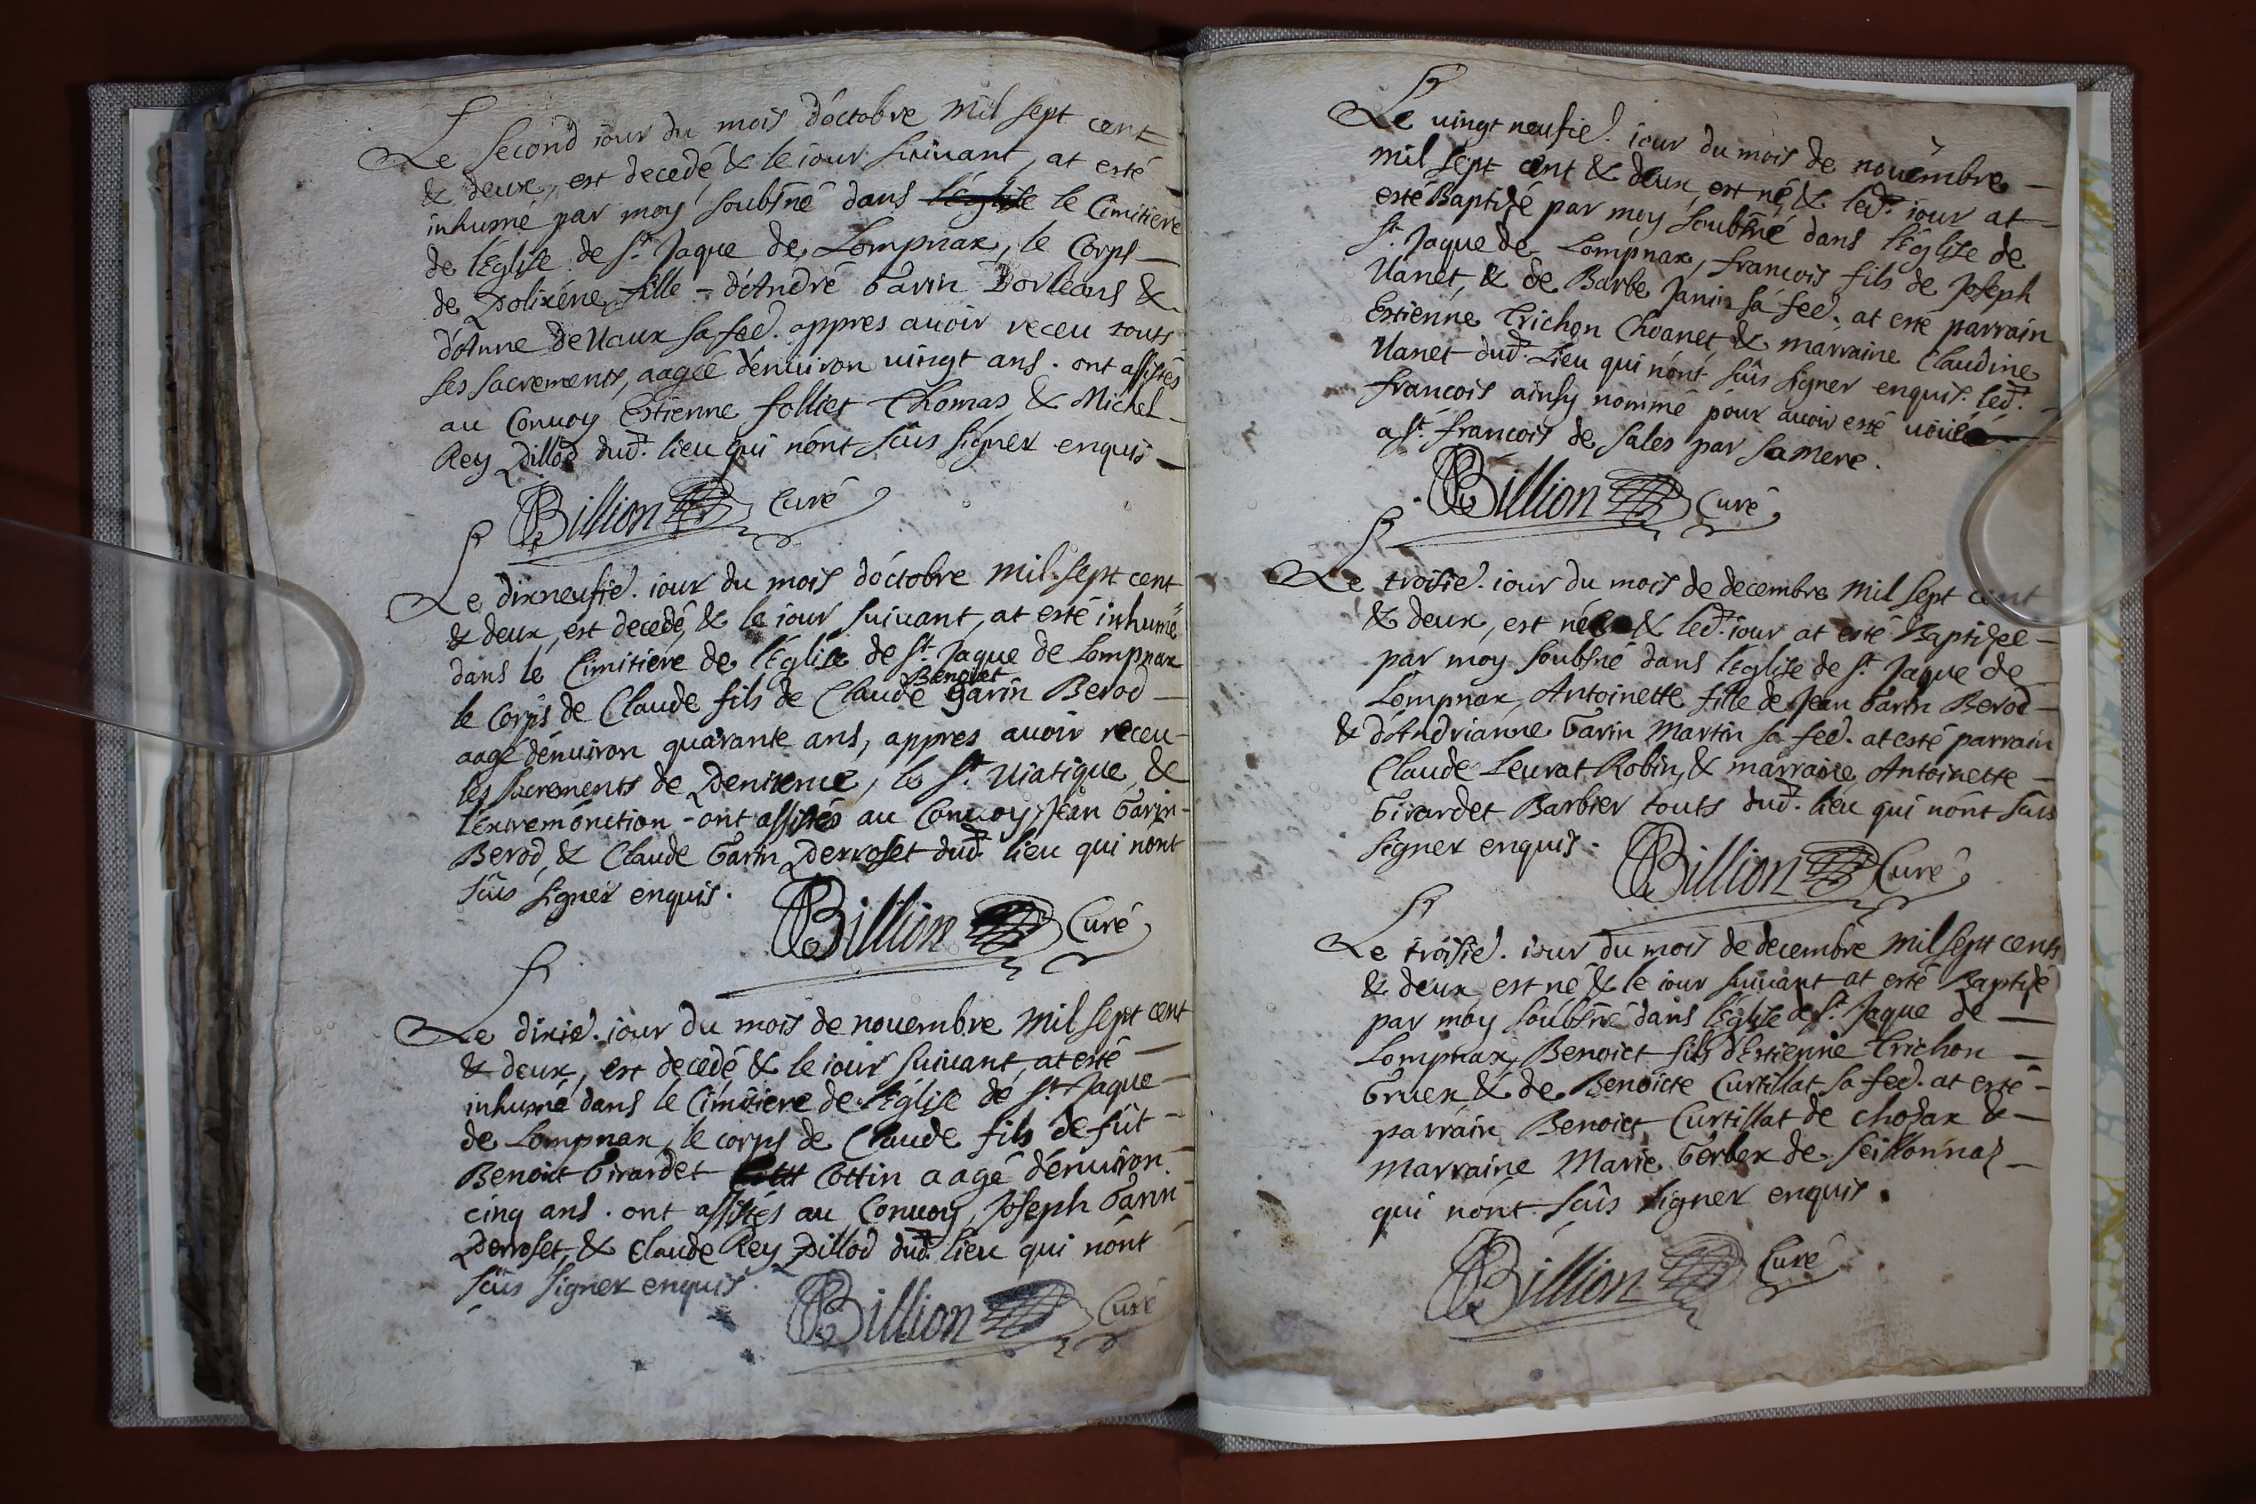 Le second iour du mois d'octobre mil sept cent
& deux, est decedé & le iour suiuant, at esté
inhumé par moy soubsné dans l'église le Cimitiere
de l'Eglise de St. Jaque de Lompnax, le Corps
de Polixéne fille d'André Garin Dorleans &
d'Anne deuaux sa fed. appres auoir receu touts
ses sacrements, aagée d'enuiron uingt ans. ont assistés
au Conuoy Estienne folliet Thomas & Michel
Rey Pillod dud. lieu qui n'ont sûs signer enquis
Billion Curé
Le dixneufie. iour du mois d'octobre mil sept cent
& deux, est decedé, & le iour suiuant, at esté inhumé
dans le Cimitiere de l'Église de St. Jaque de Lompnax
le Corps de Claude fils de Claude Benoist Garin Berod
aagé d'enuiron quarante ans, appres auoir receu
les sacrements de Penitence, le St. Uiatique, &
l'Extremónction - ont assistés au Conuoy Jean Garin
Berod & Claude Garin Perroset dud. lieu qui nont
sûs signer enquis.
Billion Curé
Le dixie. iour du mois de nouembre mil sept cent
& deux, est decedé & le iour suiuant, at esté
inhumé dans le Cimitiere de l'Église de St. Jaque
de Lompnax, le corps de Claude fils de fût
Benoist Girardet Cottin aagé d'enuiron
cinq ans. ont assistés au Conuoy, Joseph Garin
Perroset, & Claude Rey Pillod dud. lieu qui nônt
sûs signer enquis.
Billion Curé
Le uingt neufie. iour du mois de nouembre
mil sept cent & deux, est né, & led. iour at
esté Baptisé par moy soubsné dans l'Église de
St. Jaque de Lompnax, francois fils de Joseph
Uanet, & de Barbe Janin sa fed. at esté parrain
Estienne Trichon Choanet & marraine Claudine
Uanet dud. Lieu qui nónt sûs signer enquis. led.
francois ainsy nommé pour auoir esté uoüé
a St. francois de Sales par sa mere.
Billion Curé
Le troisie. iour du mois de decembre mil sept cent
& deux, est née & led. iour at esté Baptisée
par moy soubsné dans l'Église de St. Jaque de
Lompnax, Antoinette fille de Jean Garin Berod
& d'Andrianne Garin Martin sa fed. at esté parrain
Claude Leurat Robin, & marraine Antoinette
Girardet Barbier touts dud. lieu qui nônt sûs
signer enquis.
Billion Curé
Le troisie. iour du mois de decembre mil sept cents
& deux est né & le iour suiuant at esté Baptisé
par moy soubsné dans l'Église de St. Jaque de
Lompnax, Benoict fils d'Estienne Trichon
Gruex & de Benoicte Curtillat sa fed. at esté
parrain Benoict Curtillat de chodax &
marraine Marie Gerbex de Seillonnaz
qui nónt sûs signer enquis.
Billion Curé